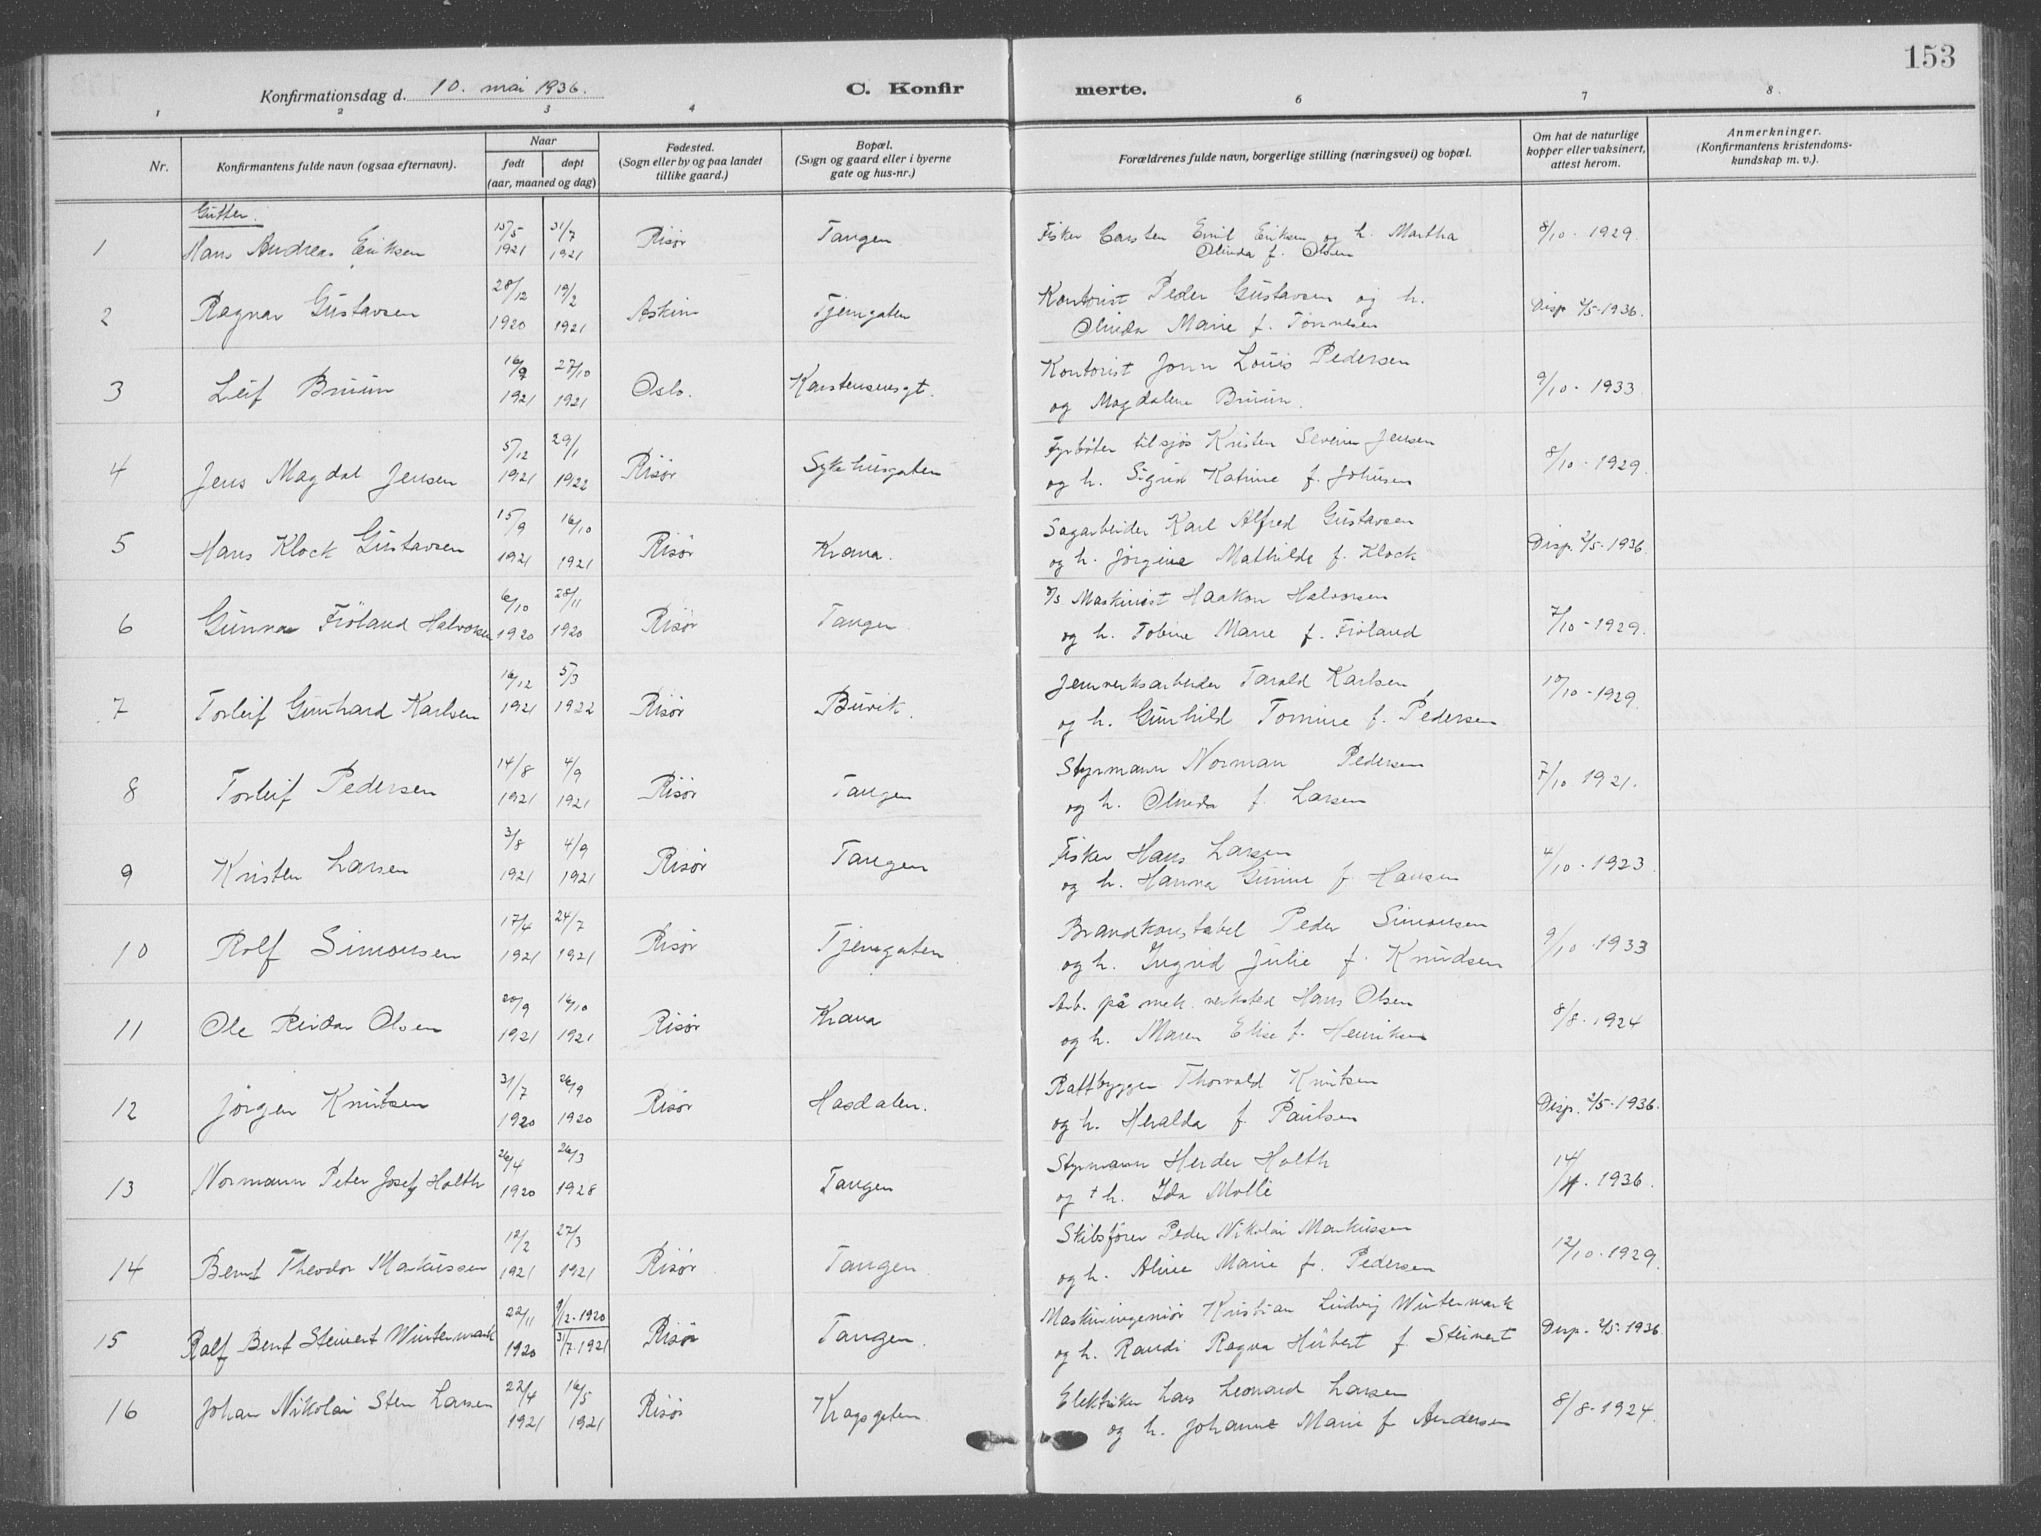 153
Konfirmationsdag d. 10. mai 1936.
C. Konfirmerte.
1 2 3 4 6 7 8.
Nr.
Konfirmantens fulde navn (ogsaa efternavn).
Naar
født døpt
(aar, maaned og dag)
Fødested.
(Sogn eller by og paa landet
tillike gaard.)
Bopæl.
(Sogn og gaard eller i byerne
gate og hus-nr.)
Forældrenes fulde navn, borgerlige stilling (næringsvei) og bopæl.
Om hat de naturlige
kopper eller vaksinert,
attest herom.
Anmerkninger.
(Konfirmantens kristendoms-
kundskap m. v.).
Gutter.
1 Hans Andreas Eriksen 15/5 1921 31/7 1921 Risør Tangen Fisker Carsten Emil Eriksen og h. Martha 8/10 - 1929.
Olinda f. Olsen
2 Ragnar Gustavsen 28/12 1920 19/2 1921 Askim Tjenngaten Kontorist Peder Gustavsen og h. Disp 2/5-1936.
Olinda Marie f. Tønnesen
3 Leif Bruun 16/9 1921 27/10 1921 Oslo. Karstensensgt. Kontorist Jonn Louis Pedersen 9/10 - 1933
og Magdalene Bruun.
4 Jens Magdal Jensen 5/12 1921 29/1 1922 Risør Sykehusgaten Fyrbøter tilsjøs Kristen Severin Jensen 8/10 - 1929.
og h. Sigrid Katrine f. Johnsen
5 Hans Klock Gustavsen 15/9 1921 16/10 1921 Risør Krana. Sagarbeider Karl Alfred Gustavsen Disp. 2/5-1936.
og h. Jørgine Mathilde f. Klock
6 Gunnar Frøland Halvorsen 6/10 1920 28/11 1920 Risør Tangen. D/S Maskinist Haakon Halvorsen 7/10 - 1929.
og h. Tobine Marie f. Frøland
7 Torleif Gunhard Karlsen 16/12 1921 5/3 1922 Risør Buvik. Jernverksarbeider Tarald Karlsen 10/10 - 1929.
og h. Gunhild Tomine f. Pedersen
8 Torleif Pedersen 14/8 1921 4/9 1921 Risør Tangen Styrmann Norman Pedersen 7/10 1921.
og h. Olinda f. Larsen
9 Kristen Larsen 3/8 1921 4/9 1921 Risør Tangen Fisker Hans Larsen 4/10 - 1923.
og h. Hanna Gurine f. Hansen
10 Rolf Simonsen 17/4 1921 24/7 1921 Risør Tjenngaten Brandkonstabel Peder Simonsen 9/10 - 1933
og h. Ingrid Julie f. Knudsen
11 Ole Reidar Olsen 20/9 1921 16/10 1921 Risør Krana Arb. på mek. verksted Hans Olsen 8/8 - 1924
og h. Maren Elise f. Henriksen
12 Jørgen Knutsen 31/7 1920 26/9 1920 Risør Hasdalen. Raftbygger Thorvald Knutsen Disp. 2/5-1936.
og h. Heralda f. Paulsen
13 Normann Peter Josef Holth 26/4 1920 26/3 1928 Tangen Styrmann Herder Holth 14/4. 1936.
og † h. Ida Molle
14 Bernt Theodor Markussen 12/2 1921 27/3 1921 Risør Tangen Skibsfører Peder Nikolai Markussen 12/10 - 1929.
og h. Aline Marie f. Pedersen
15 Ralf Bent Steinert Wintermark 22/11 1920 9/2-1920 31/7-1921 Risør Tangen. Maskiningeniør Kristian Ludvig Wintermark Disp. 2/5-1936.
og h. Randi Ragna Hubert f. Steinert
16 Johan Nikolai Sten Larsen 22/4 1921 16/5 1921 Risør Kragsgaten Elektriker Lars Leonard Larsen 8/8 - 1924.
og h. Johanne Marie f. Andersen